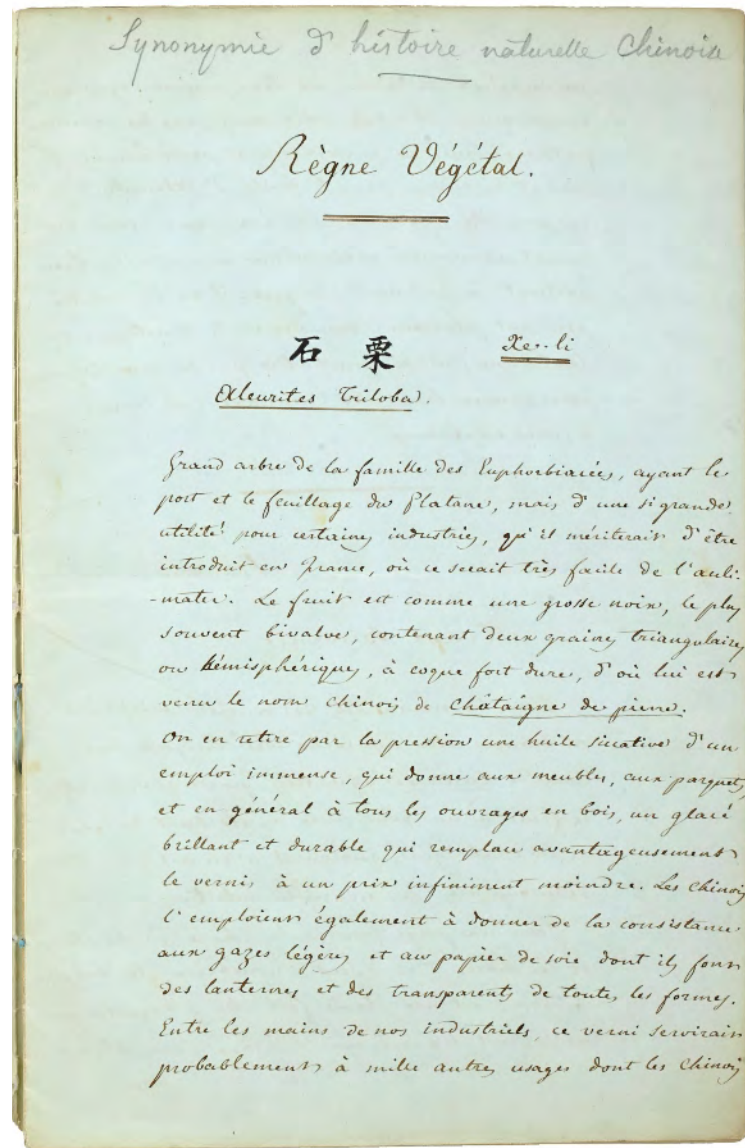 Synonymie d'histoire naturelle Chinoise
Règne Végétal.
石 栗 Xe-li
Aleurites Triloba.
Grand arbre de la famille des Euphorbiacées, ayant le
port et le feuillage du Platane, mais d'une si grande
utilité pour certaines industries, qu'il mériterait d'être
introduit en France, où ce serait très facile de l'accli-
-mater. Le fruit est comme une grosse noix, le plus
souvent bivalve, contenant deux graines triangulaires
ou hémisphériques, à coque fort dure, d'où lui est
venu le nom chinois de Châtaigne de pierre.
On en retire par la pression une huile siccative d'un
emploi immense, qui donne aux meubles, aux parquets,
et en général à tous les ouvrages en bois, un glacé
brillant et durable qui remplace avantageusement
le vernis à un prix infiniment moindre. Les Chinois
l'emploient également à donner de la consistance
aux gazes légères et au papier de soie dont ils font
des lanternes et des transparents de toutes les formes.
Entre les mains de nos industriels, ce verni servirait
probablement à mille autres usages dont les Chinois